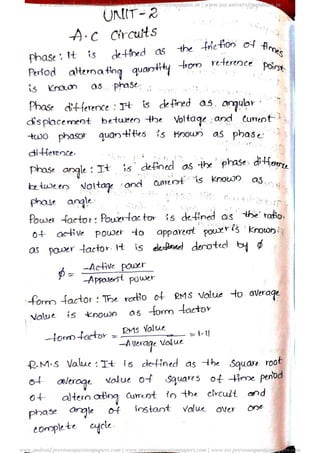 UNIT-2
A.C Circuits
phase : It is defined as the friction of times
Period alternating quantity from reference point
is known as phase.
Phase difference : It is defined as angular
displacement between the voltage and current
two phasor quantities is known as phase
difference.
phase angle : It is defined as the phase difference
between voltage and current is known as
phase angle.
Power factor : Power factor is defined as the ratio
of active power to apparent power is known
as power factor It is denoted by ϕ
ϕ = Active power
Apparent power
form factor : The ratio of RMS value to average
value is known as form factor
form factor = RMS Value = 1.11
Average value
R.M.S Value : It is defined as the square root
of average value of squares of time period
of alternating current in the circuit and
phase angle of instant value over one
complete cycle.
www.android.previousquestionpapers.com | www.previousquestionpapers.com | www.ios.previousquestionpapers.com